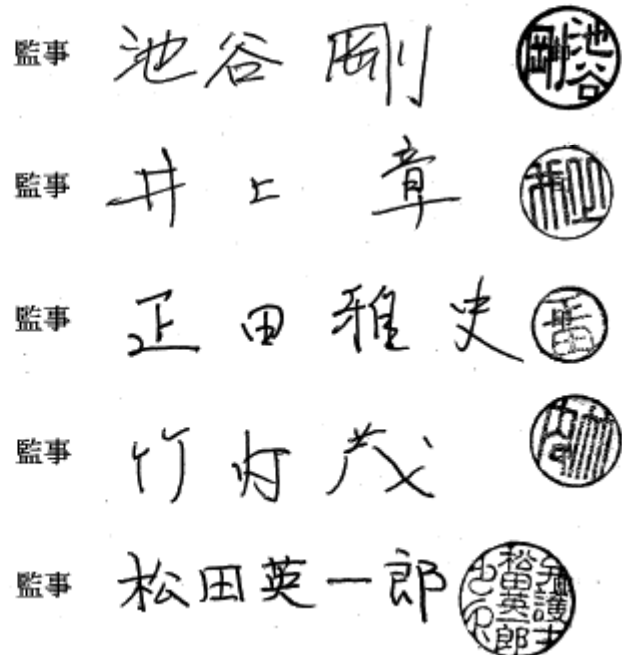 監事 池谷 剛 池谷剛
監事 井上 章
監事 正田雅史 正田
監事 竹内 茂
監事 松田英一郎 弁護士松田英一郎之印